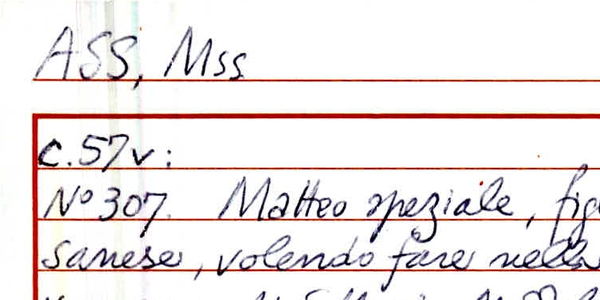 ASS, Mss
c.57v:
N° 307. Matteo speziale, fig
sanese, volendo fare nella